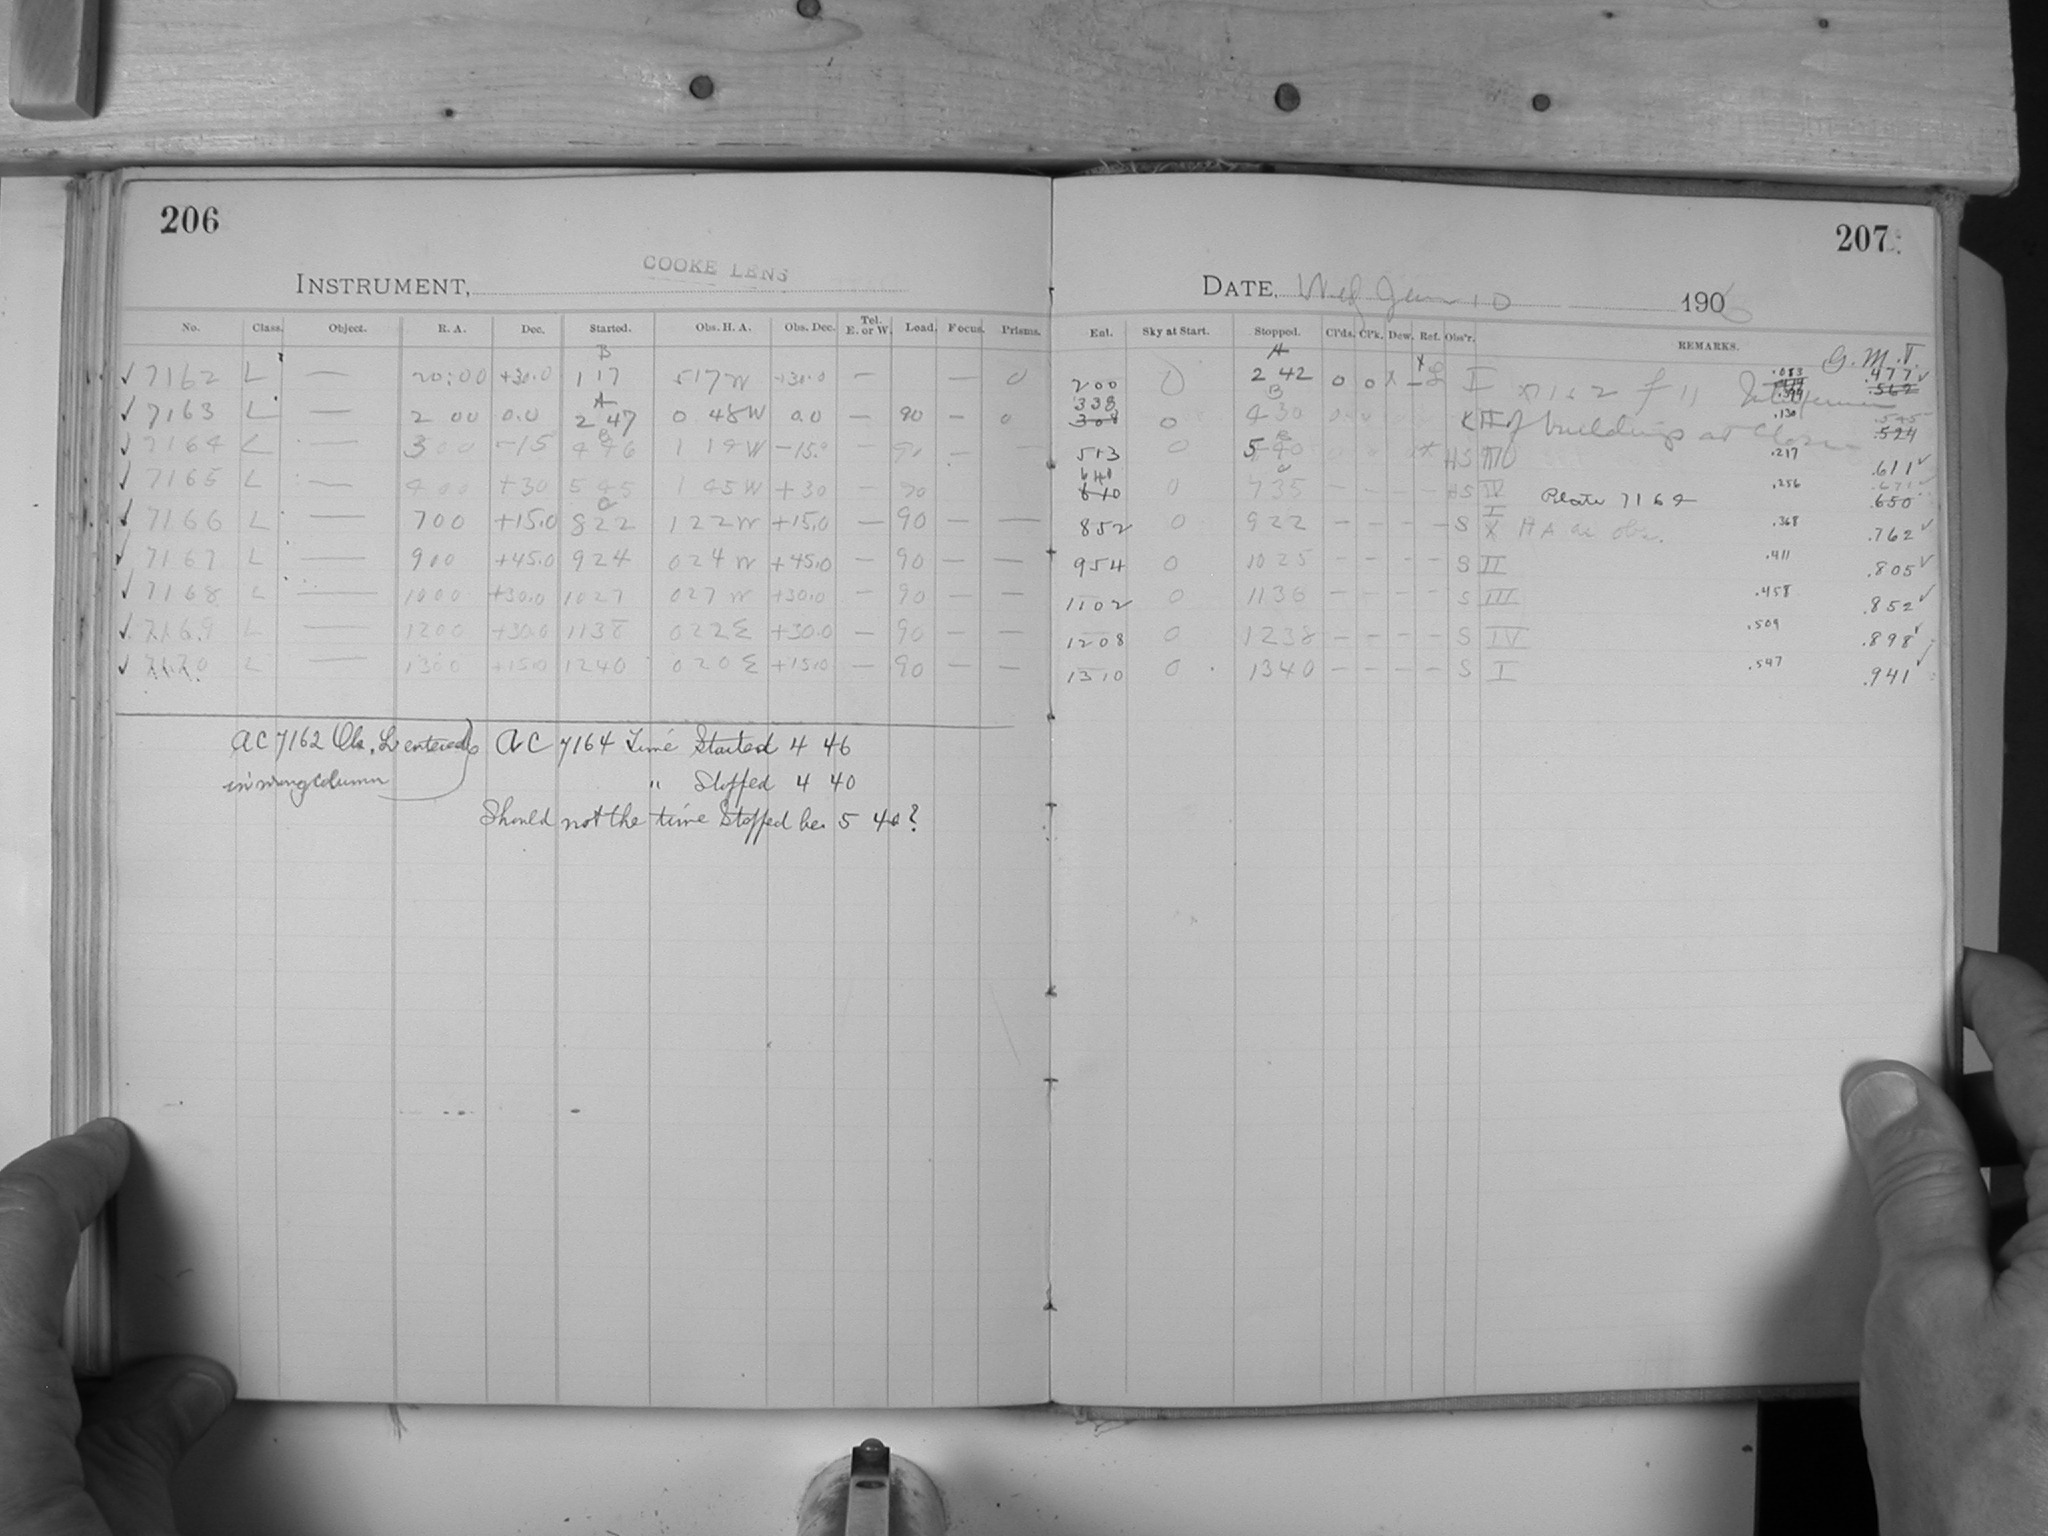 206
COOKE LENS
INSTRUMENT,
No. Class. Object. R. A. Dec. Started. Obs. H. A. Obs. Dec. Tel. E. or W. Load. Focus. Prisms.
B
✓ 7162 L — 20:00 +30.0 1 17 5 17 W +30.0 — — 0
A
✓ 7163 L — 2 00 0.0 2 47 0 48 W 0.0 — 90 — 0
B
✓ 7164 L — 3 00 -15 4 46 1 19 W -15.0 — 90 — —
✓ 7165 L — 4 00 +30 5 45 1 45 W +30 — 90
✓ 7166 L — 7 00 +15.0 8 22 1 22 W +15.0 — 90 — —
✓ 7167 L — 9 00 +45.0 9 24 0 24 W +45.0 — 90 — —
✓ 7168 L — 10 00 +30.0 10 27 0 27 W +30.0 — 90 — —
✓ 7169 L — 12 00 +30.0 11 38 0 22 E +30.0 — 90 — —
✓ 7170 L — 13 00 +15.0 12 40 0 20 E +15.0 — 90 — —
AC 7162 Obs, L entered
in wrong column
AC 7164 Time Started 4 46
" Stopped 4 40
Should not the time Stopped be 5 40?
207
DATE, Wed Jan 10 1906
Enl. Sky at Start. Stopped. Cl'ds. Cl'k. Dew. Ref. Obs'r. REMARKS.
G. M. T.
A
200 0 2 42 0 0 x — L I 7162 .083 .477 ✓
.562
B
338
308 0 4 30 II of buildings at close .130 .524
513 0 5 40 HS III .217 .611 ✓
640
610 0 7 35 HS IV Plate 7164 .256 .650
852 0 9 22 – – – – S I H A as obs. .368 .762 ✓
954 0 10 25 – – – – S II .411 .805 ✓
1102 0 11 36 – – – – S III .458 .852 ✓
1208 0 12 38 – – – – S IV .509 .898 ✓
1310 0 13 40 – – – – S I .547 .941 ✓